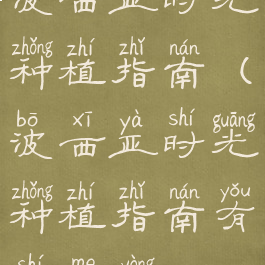 波西亚时光
zhǒng zhí zhǐ nán
种植指南(
bō xī yà shí guāng
波西亚时光
zhǒng zhí zhǐ nán yǒu
种植指南有
shí me yòng